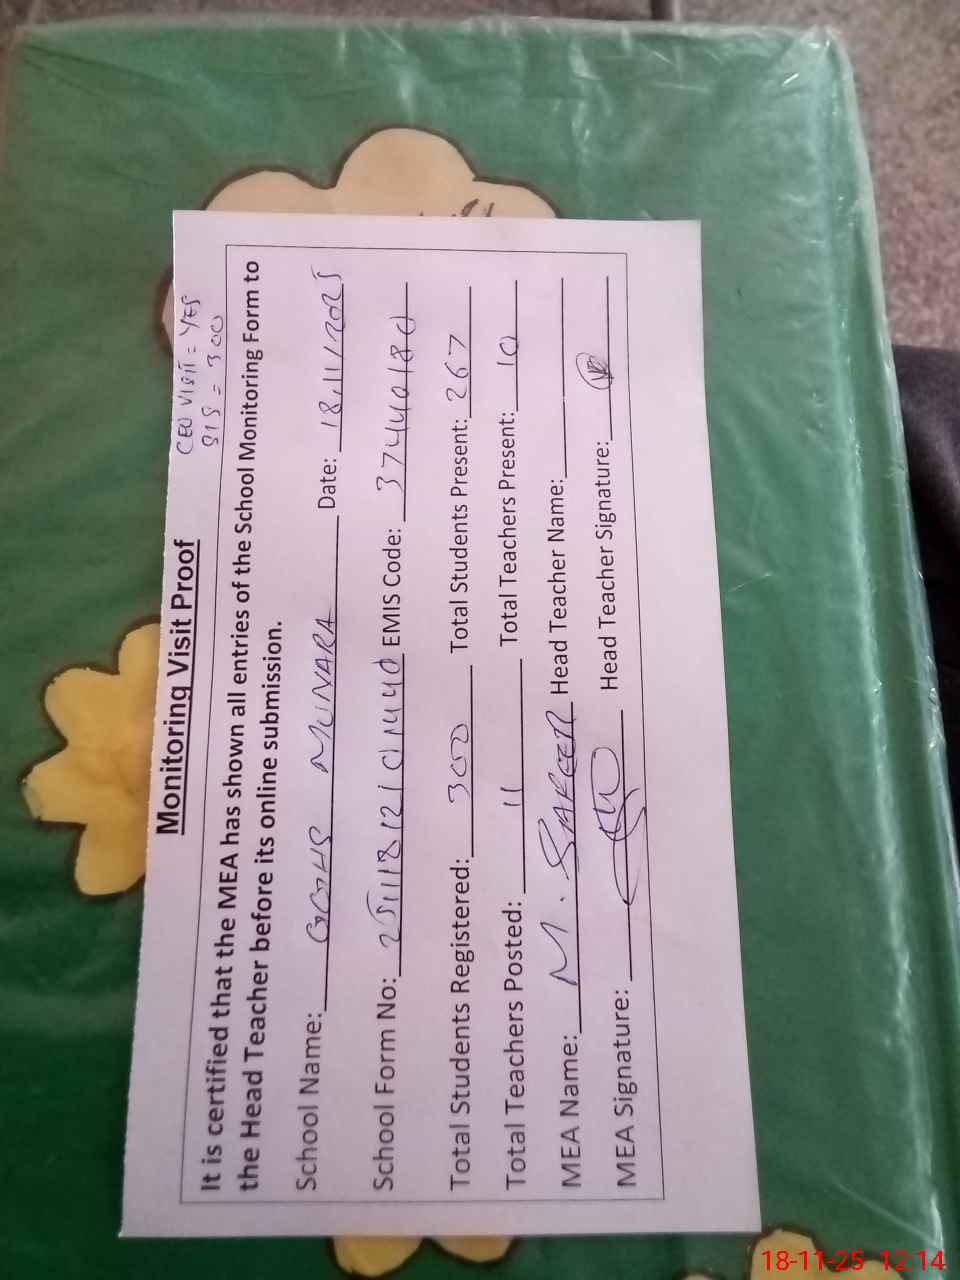 Monitoring Visit Proof
CEO VISIT = YES
SIS = 300
It is certified that the MEA has shown all entries of the School Monitoring Form to
the Head Teacher before its online submission.
School Name: GGHS MUNARA Date: 18/11/2025
School Form No: EMIS Code: 37440180
Total Students Registered: 300 Total Students Present: 267
Total Teachers Posted: 11 Total Teachers Present: 10
MEA Name: M. SAFEER Head Teacher Name:
MEA Signature: Head Teacher Signature:
18-11-25 12:14